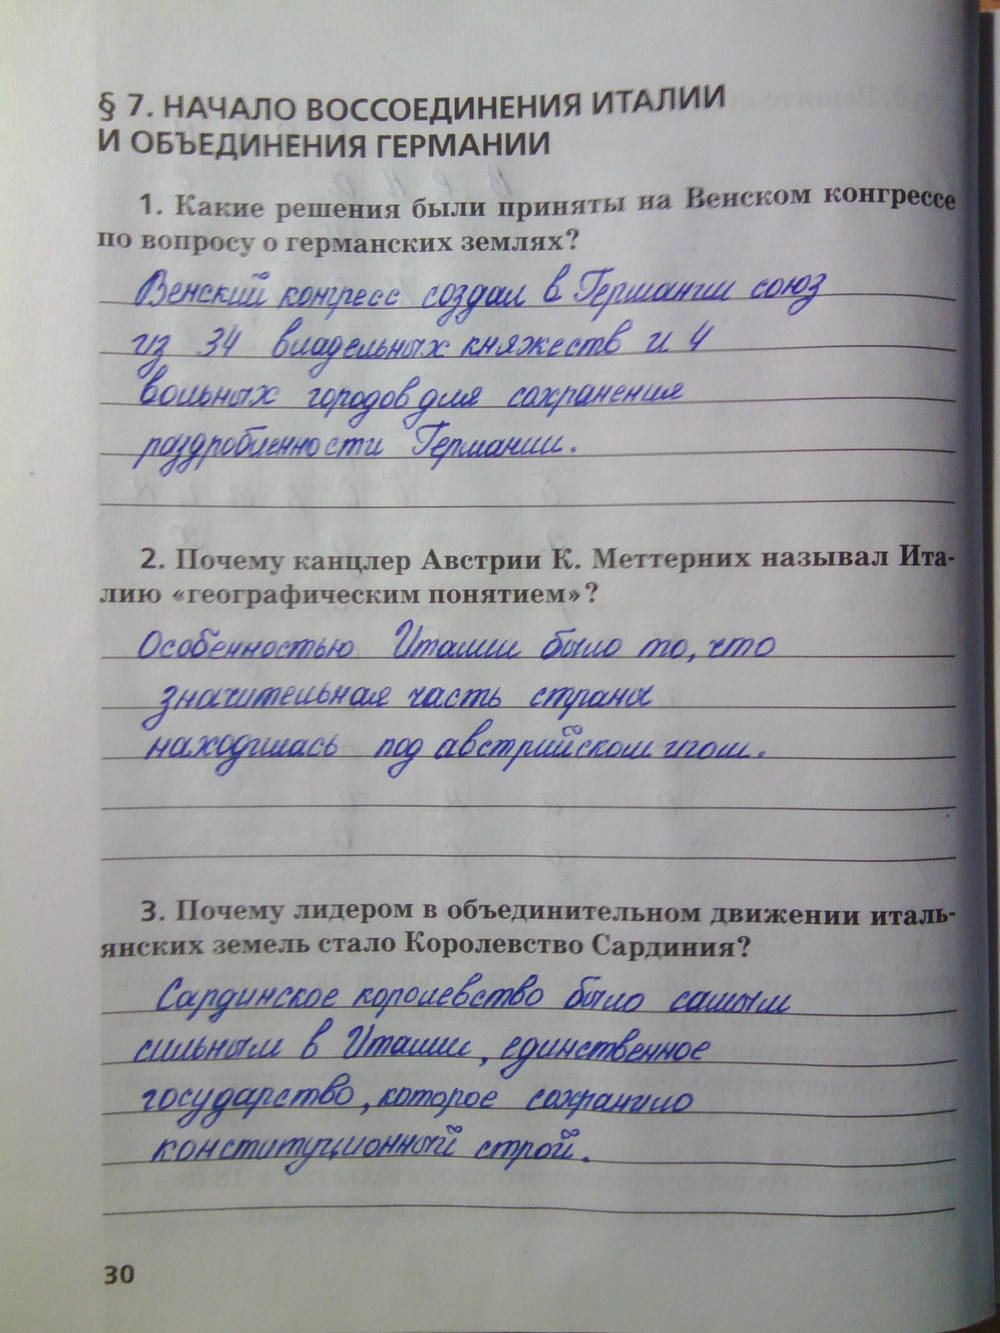 § 7. НАЧАЛО ВОССОЕДИНЕНИЯ ИТАЛИИ
И ОБЪЕДИНЕНИЯ ГЕРМАНИИ
1. Какие решения были приняты на Венском конгрессе
по вопросу о германских землях?
Венский конгресс создал в Германии союз
из 34 владельных княжеств и 4
вольных городов для сохранения
раздробленности Германии.
2. Почему канцлер Австрии К. Меттерних называл Ита-
лию «географическим понятием»?
Особенностью Италии было то, что
значительная часть страны
находилась под австрийским игом.
3. Почему лидером в объединительном движении италь-
янских земель стало Королевство Сардиния?
Сардинское королевство было самым
сильным в Италии, единственное
государство, которое сохранило
конституционный строй.
30